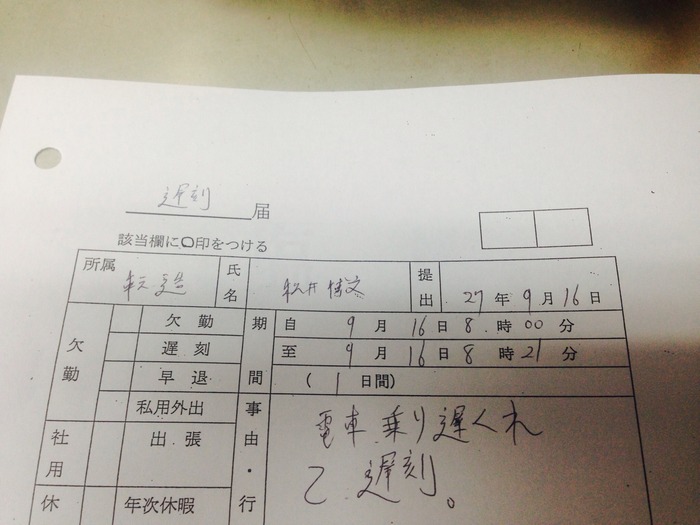 遅刻届
該当欄に○印をつける
所属 氏名 松井博文 提出 27年9月16日
欠勤 欠勤 期間 自 9月16日8時00分
遅刻 至 9月16日8時21分
早退 (1日間)
私用外出 事由・行
電車乗り遅くれ
て遅刻。
社用 出張
休 年次休暇